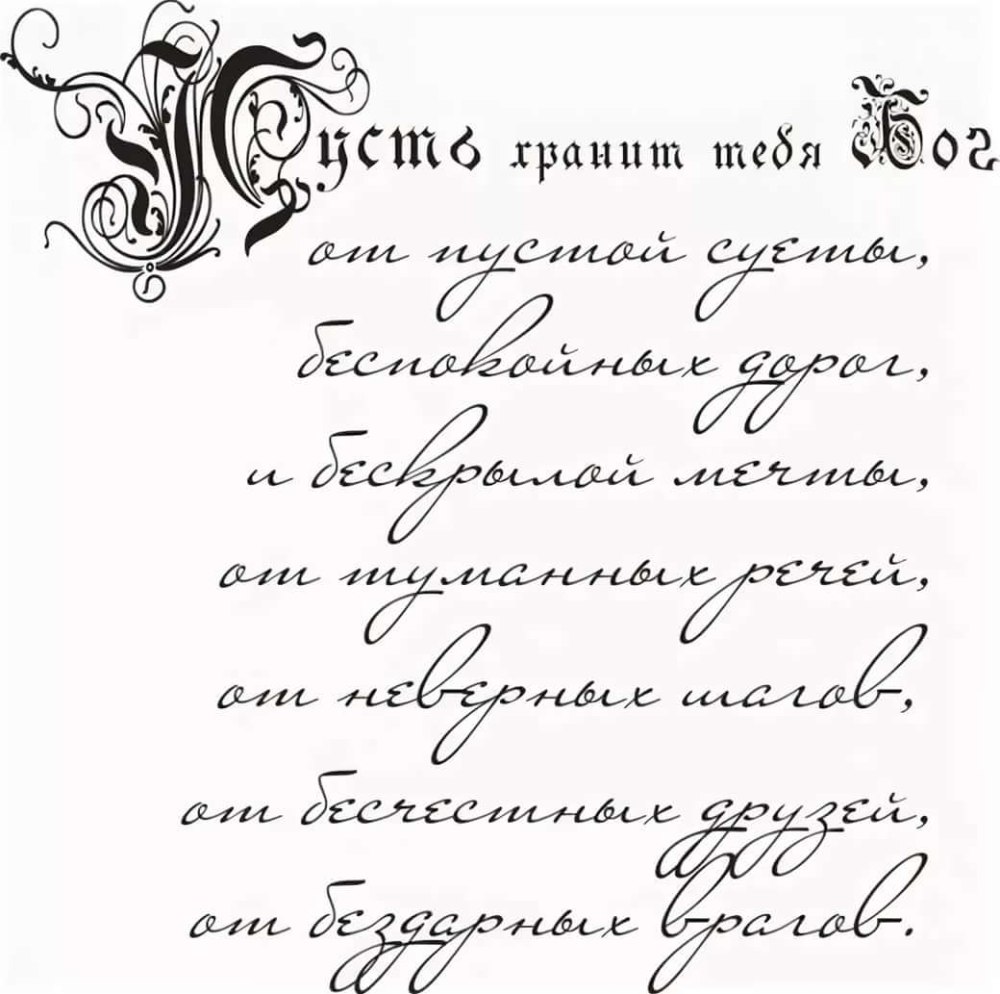 Пусть хранит тебя Бог
от пустой суеты,
беспокойных дорог,
и бескрылой мечты,
от туманных речей,
от неверных шагов,
от бесчестных друзей,
от бездарных врагов.